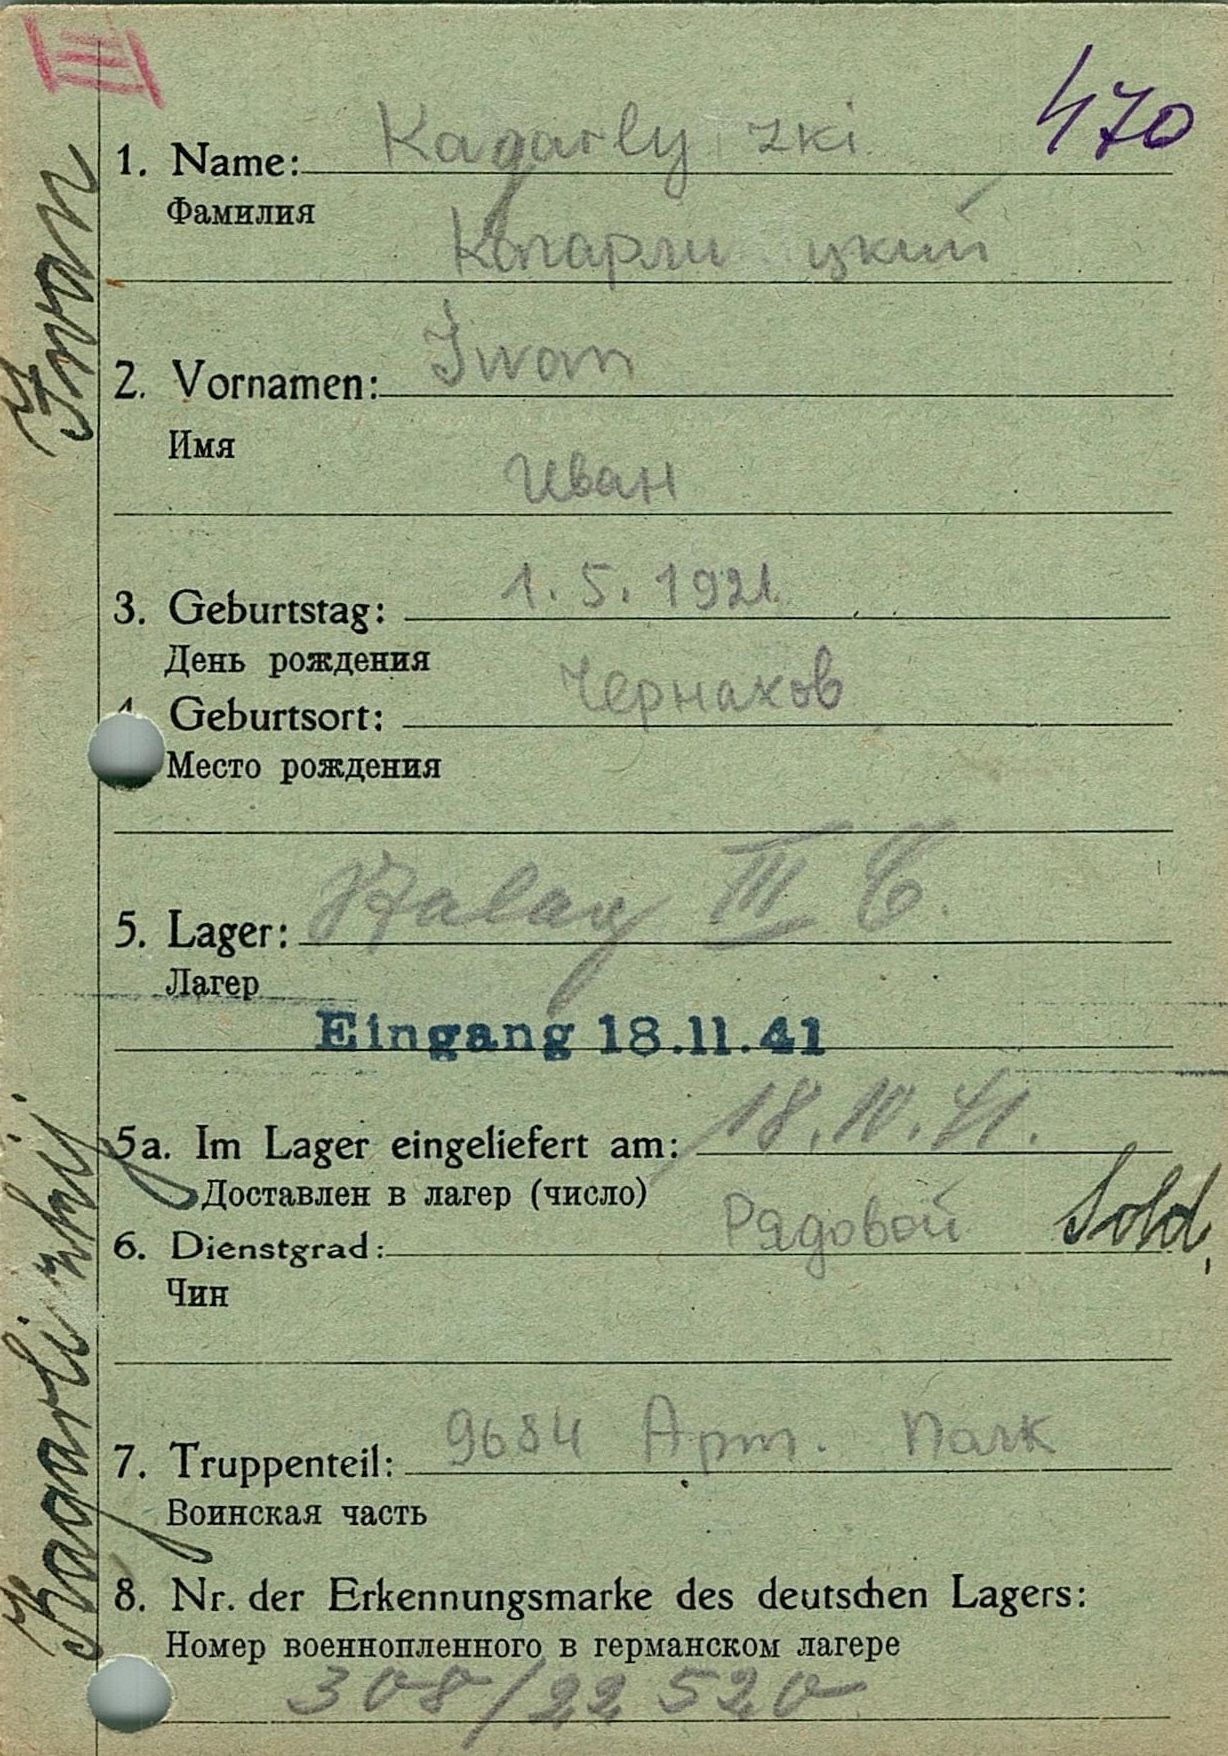 III
470
1. Name: Kagarly zki
Фамилия
Кагарли цкий
2. Vornamen: Iwan
Имя
Иван
3. Geburtstag: 1.5.1921
День рождения
Чернахов
4. Geburtsort:
Место рождения
5. Lager: Stalag III C.
Лагер
Eingang 18.11.41
5a. Im Lager eingeliefert am: 18.10.41.
Доставлен в лагер (число)
6. Dienstgrad: Рядовой Sold.
Чин
7. Truppenteil: 9684 Арт. Парк
Воинская часть
8. Nr. der Erkennungsmarke des deutschen Lagers:
Номер военнопленного в германском лагере
308/22520
Kagarlizkij Iwan